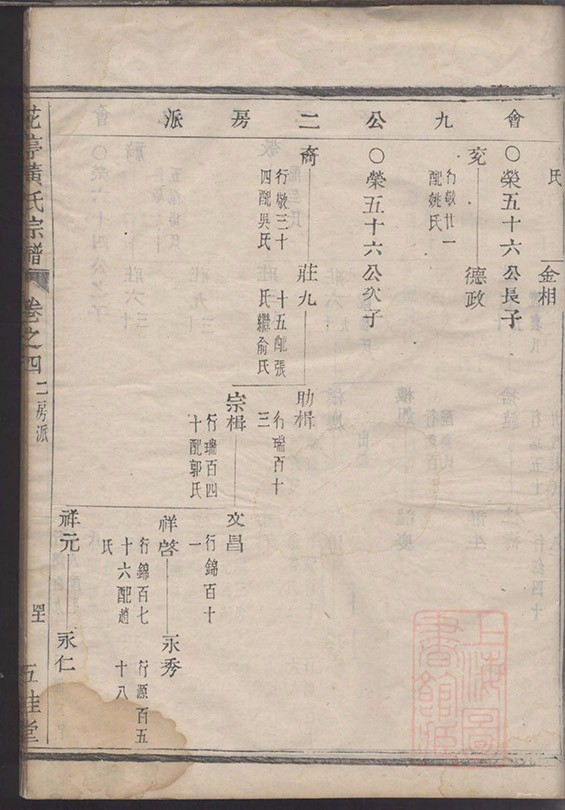 會九公二房派
氏
金相
○榮五十六公長子
充
行敬廿一
配姚氏
德政
○榮五十六公次子
裔
行敬三十
四配吳氏
莊九
十五配張
氏繼俞氏
助楫
行瑞百十
三
宗楫
行瑞百四
十配郭氏
文昌
行錦百十
一
祥啓
行錦百七
十六配趙
氏
永秀
行源百五
十八
祥元
永仁
花亭黃氏宗譜
卷之四
二房派
五桂堂
上海圖
書館藏